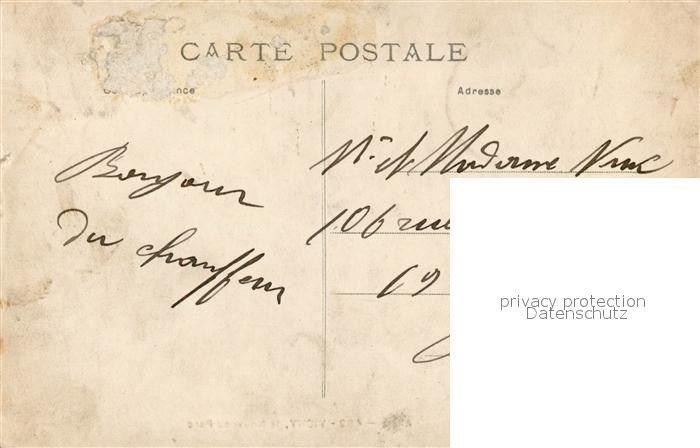 CARTE POSTALE
Adresse
Bonjour
du chauffeur
Mr et Madame
106 rue
19
privacy protection
Datenschutz